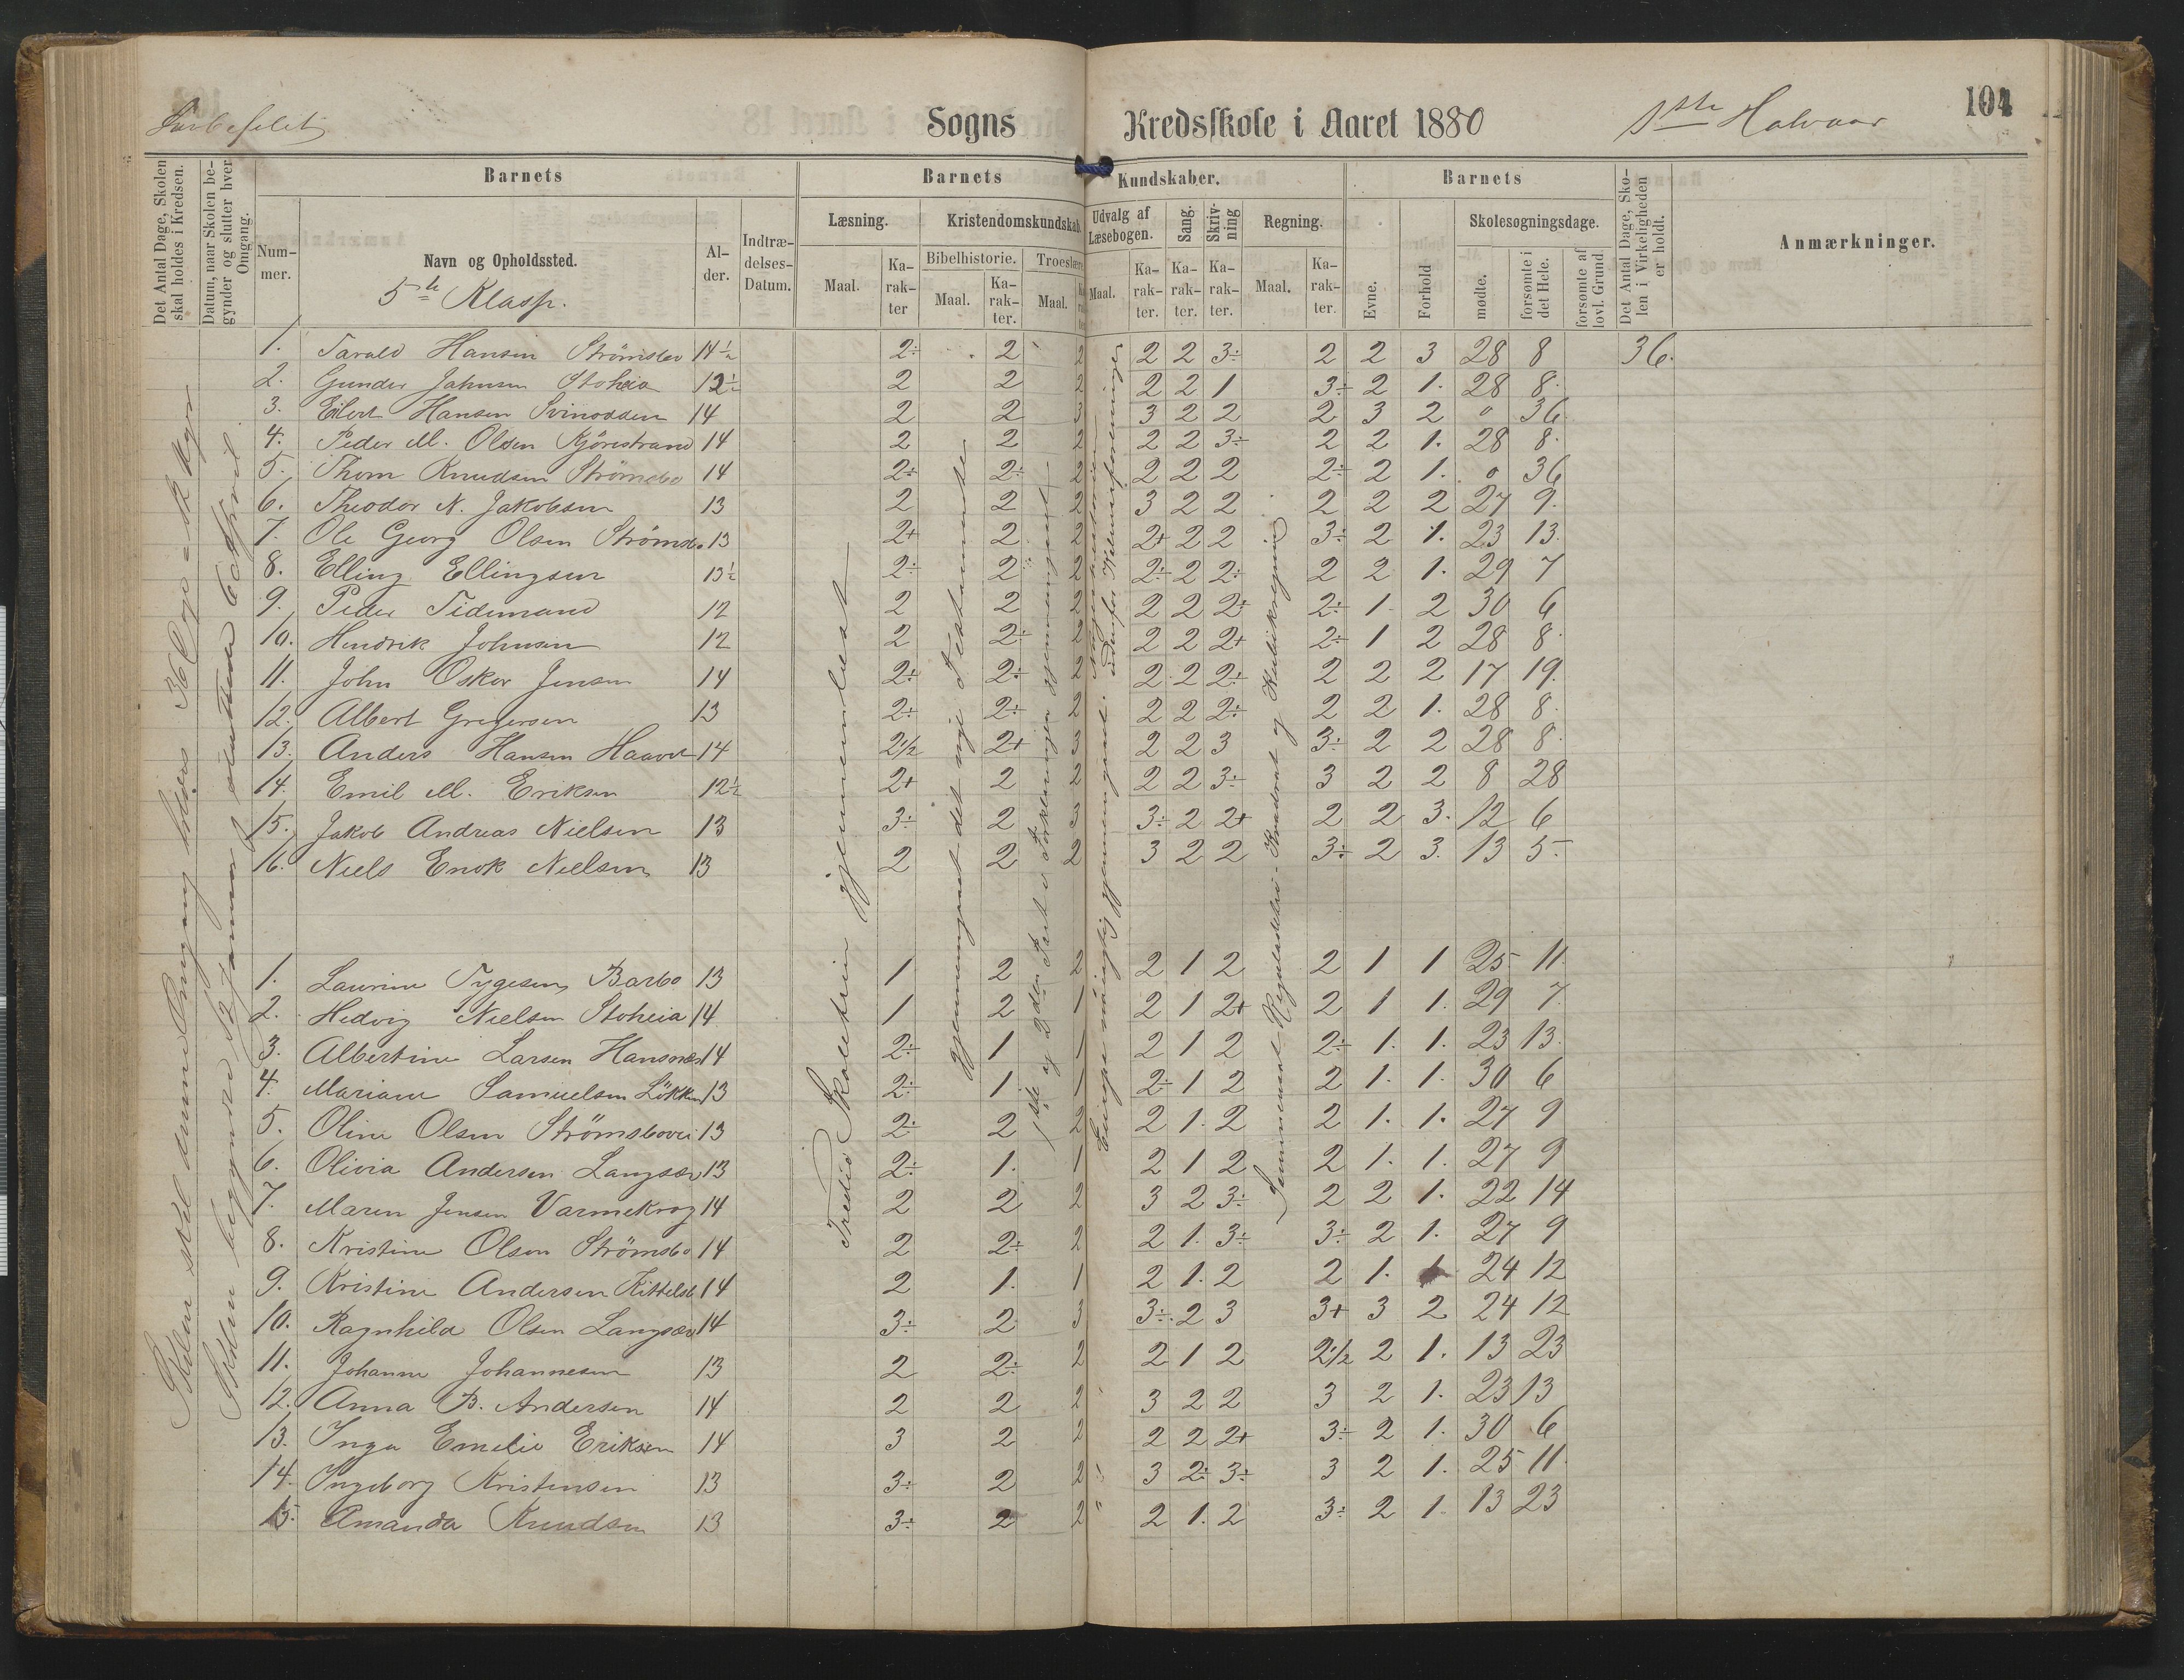 Sogns Kredsskole i Aaret 1880 1ste Halvaar 104
Det Antal Dage, Skolen skal holdes i Kredsen.
Datum, naar Skolen begynder og slutter hver Omgang.
Barnets
Barnets Kundskaber.
Barnets
Det Antal Dage, Skolen i Virkeligheden er holdt.
Anmærkninger.
Nummer.
Navn og Opholdssted.
5te Klasse.
Alder.
Indtrædelses-Datum.
Læsning. Kristendomskundskab. Udvalg af Læsebogen. Sang. Skrivning Regning.
Bibelhistorie. Troeslære.
Maal. Karakter Maal. Karakter. Maal. Karakter Maal. Karakter. Karakter. Karakter. Maal. Karakter.
Evne. Forhold Skolesøgningsdage.
mødte. forsømte i det Hele. forsømte af lovl. Grund
1. Tarald Hansen Strömsbo 14½ 2÷ 2 2 2 2 3÷ 2 2 3 28 8 36.
2. Gunder Jahnsen Stoheia 12½ 2 2 2 2 2 1 3÷ 2 1. 28 8.
3. Eilert Hansen Svinodden 14 2 2 3 3 2 2 2 3 2 0 36
4. Peder M. Olsen Kjörestrand 14 2 2 2 2 2 3÷ 2 2 1. 28 8.
5. Thom Knudsen Strömsbo 14 2÷ 2÷ 2 2 2 2 2÷ 2 1. 0 36
6. Theodor N. Jakobsen 13 2 2 2 3 2 2 2 2 2 27 9.
7. Ole Georg Olsen Strömsbo 13 2+ 2 2 2+ 2 2 3÷ 2 1. 23 13.
8. Elling Ellingsen 13½ 2÷ 2 2 2÷ 2 2÷ 2 2 1. 29 7
9. Peder Tidemand 12 2 2 2 2 2 2÷ 2÷ 1 2 30 6
10. Hendrik Johnsen 12 2 2÷ 2 2 2 2+ 2÷ 1 2 28 8.
11. John Oskar Jensen 14 2÷ 2÷ 2 2 2 2÷ 2 2 2 17 19.
12. Albert Gregersen 13 2÷ 2÷ 2 2 2 2÷ 2 2 1. 28 8.
13. Anders Hansen 14 2½ 2+ 3 2 2 3 3÷ 2 2 28 8.
14. Emil M. Eriksen 12½ 2+ 2 2 2 2 3÷ 3 2 2 8 28
15. Jakob Andreas Nielsen 13 3÷ 2 3 3÷ 2 2+ 2 2 3. 12 6
16. Niels Enok Nielsen 13 2 2 2 3 2 2 3÷ 2 3. 13 5.
1. Laurine Tygesen Barbo 13 1 2 2 2 1 2 2 1 1 25 11.
2. Hedvig Nielsen Stoheia 14 1 2 1 2 1 2+ 2 1 1. 29 7.
3. Albertine Larsen Hansnæs 14 2÷ 1 1 2 1 2 2÷ 1. 1. 23 13.
4. Mariane Samuelsen Lökken 13 2÷ 1 1 2÷ 1 2 2 1. 1. 30 6
5. Oline Olsen Strömsbovei 13 2÷ 2 2 2 1. 2 2 1. 1. 27 9
6. Olivia Andersen Langsæv 13 2÷ 1. 1 2 1 2 2 1. 1. 27 9
7. Maren Jensen Varmekrog 14 2 2 2 3 2 3÷ 2 2 1. 22 14
8. Kristine Olsen Strömsbo 14 2 2÷ 2 2 1. 3÷ 3÷ 2 1. 27 9
9. Kristine Andersen Kittelsb 14 2 1. 1 2 1. 2 2 1. 1 24 12
10. Ragnhild Olsen Langsæv 14 3÷ 2 3 3÷ 2 3 3+ 3 2 24 12
11. Johanne Johannesen 13 2 2÷ 2 2 1 2 2½ 2 1. 13 23
12. Anna B. Andersen 14 2 2 2 3 2 2 3 2 1. 23 13
13. Inga Emelie Eriksen 14 3 2 2 2 2 2+ 3÷ 2 1. 30 6
14. Ingeborg Kristensen 13 3÷ 2 2 3 2÷ 3÷ 3 2 1. 25 11.
15. Amanda Knudsen 13 3÷ 2 2 2 1. 2 3÷ 2 1. 13 23
Skolen skal denne Omgang holdes 36 Dage
Skolen begyndte 12 Januar & sluttede 6 April
Tredie Skoletrin gjennemlæst
gjennemgaaet det nye Testamente
1ste og 2den Part i Forklaringen gjennemgaaet